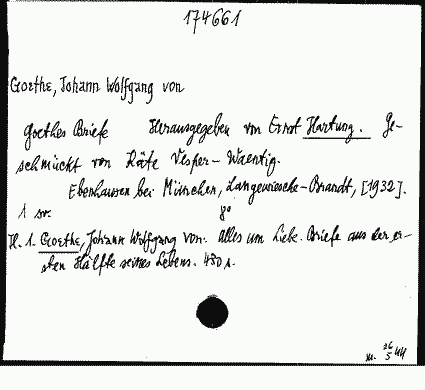 174661
Goethe, Johann Wolfgang von
Goethes Briefe Herausgegeben von Ernst Hartung. Ge-
schmückt von Käte Vesper-Waentig.
Ebenhausen bei München, Langewiesche-Brandt, [1932].
1 sv. 8°
H. 1. Goethe, Johann Wolfgang von: Alles um Liebe. Briefe aus der er-
sten Hälfte seines Lebens. 480 s.